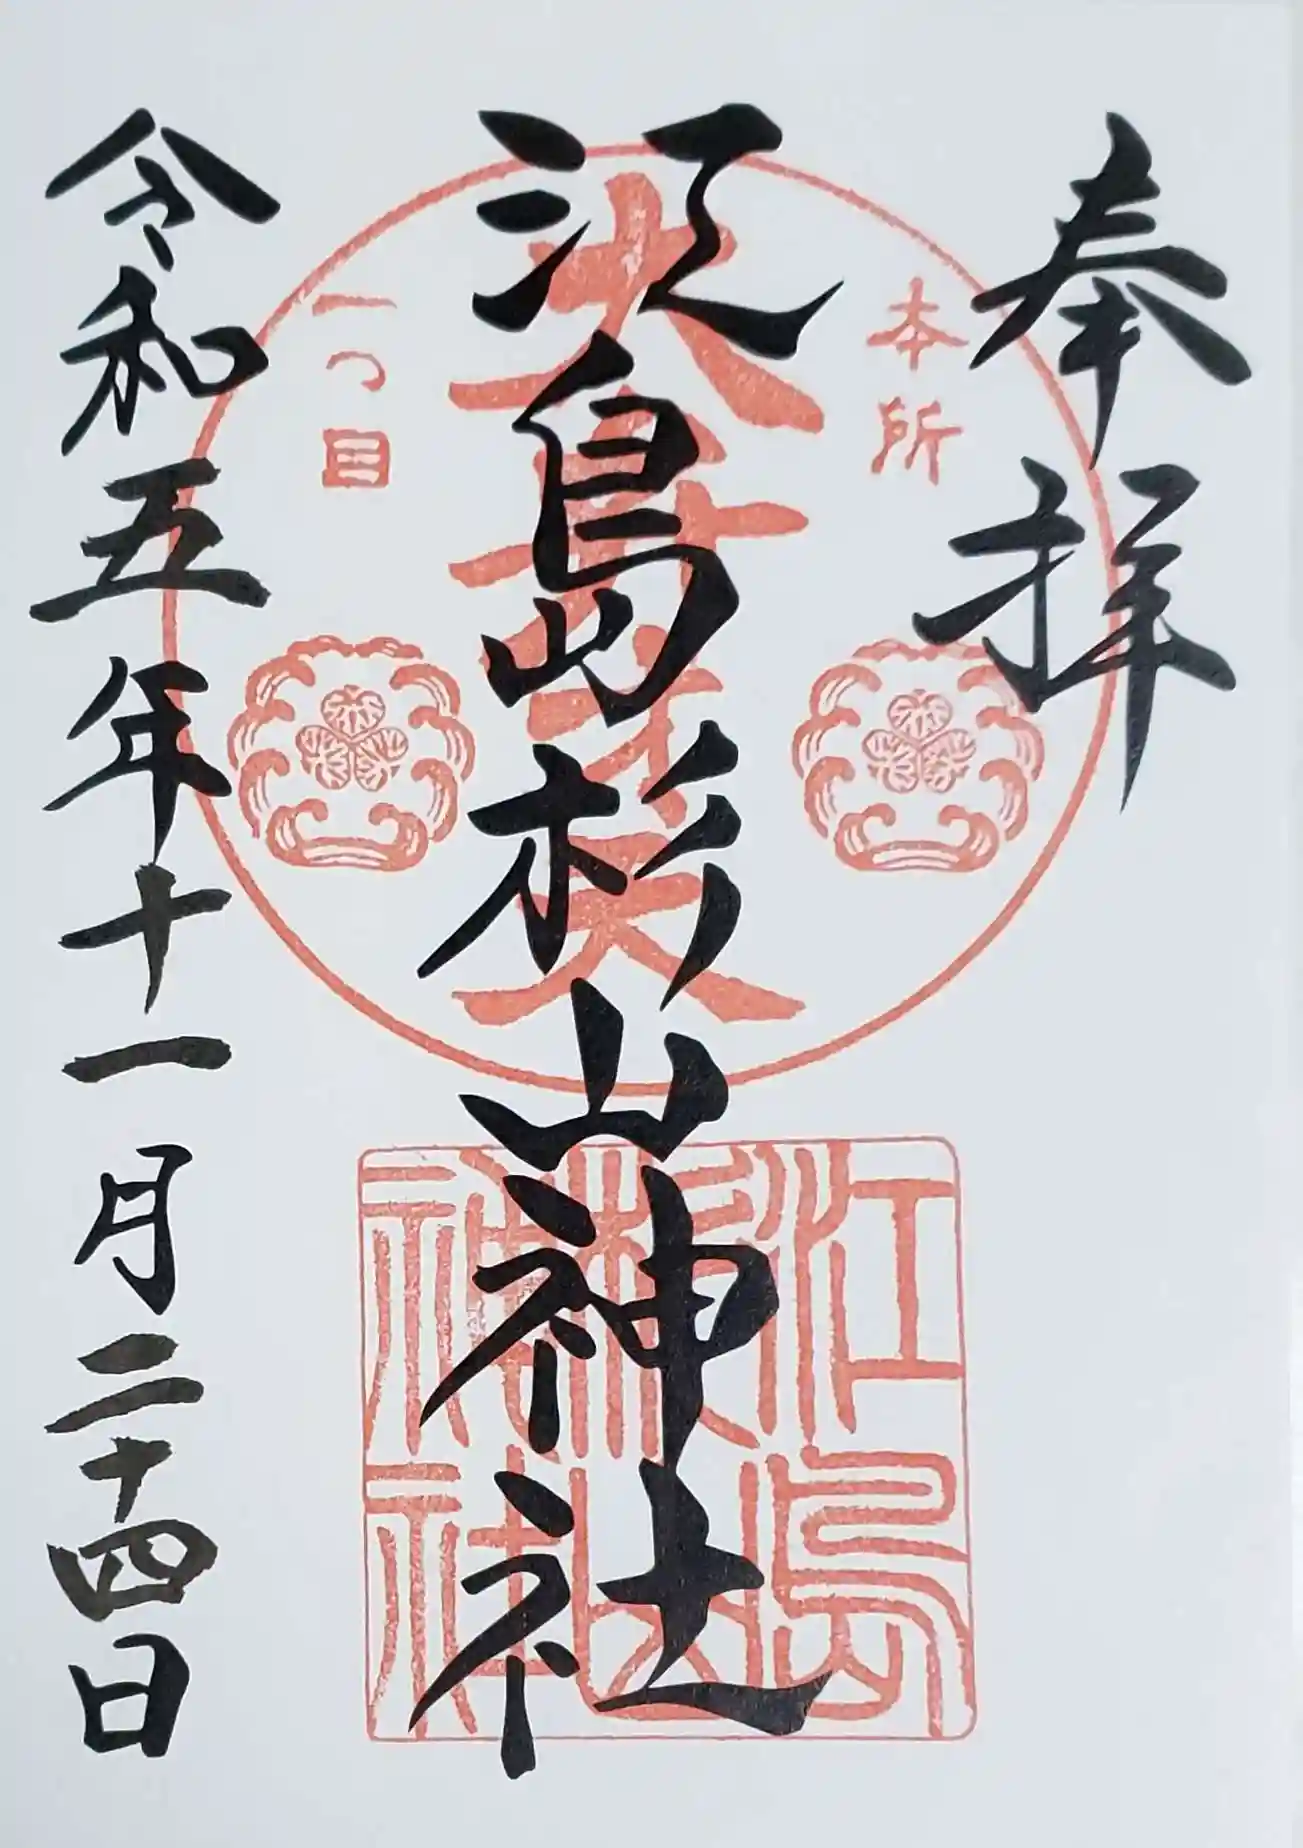 奉拝
本所
江島杉山神社
一つ目
江島
杉山
神社
令和五年十一月二十四日